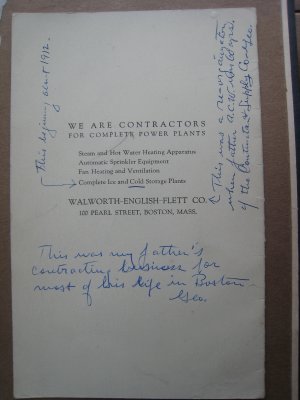 This begining about 1912.
WE ARE CONTRACTORS
FOR COMPLETE POWER PLANTS
Steam and Hot Water Heating Apparatus
Automatic Sprinkler Equipment
Fan Heating and Ventilation
Complete Ice and Cold Storage Plants
WALWORTH-ENGLISH-FLETT CO.
100 PEARL STREET, BOSTON, MASS.
This was a reorganization
when father
of the Contractor's Supply Co. Geo.
This was my father's
contracting business for
most of his life in Boston
Geo.